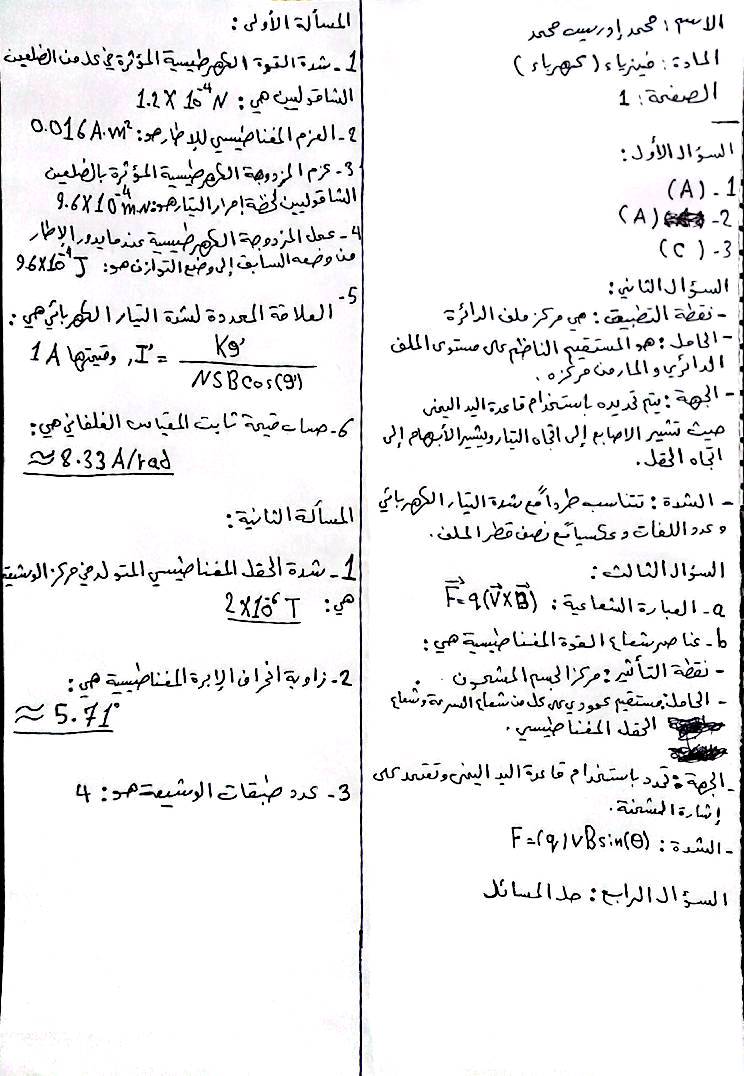 الاسم : محمد إدريس محمد
المادة : فيزياء (كهرباء)
الصفحة : 1
السؤال الأول :
1- (A)
2- (A)
3- (C)
السؤال الثاني :
- نقطة التطبيق : هي مركز ملف الدائرة
- الحامل : هو المستقيم الناظم على مستوى الملف
الدائري والمار من مركزه .
- الجهة : يتم تحديده باستخدام قاعدة اليد اليمنى
حيث تشير الاصابع إلى اتجاه التيار ويشير الأبهام إلى
اتجاه الحقل .
- الشدة : تتناسب طرداً مع شدة التيار الكهربائي
وعدد اللفات وعكسياً مع نصف قطر الملف .
السؤال الثالث :
a- العبارة الشعاعية : F⃗=q(V⃗×B⃗)
b- عناصر شعاع القوة المغناطيسية هي :
- نقطة التأثير : مركز الجسم المشحون .
- الحامل : مستقيم عمودي على كل من شعاع السرعة وشعاع
الحقل المغناطيسي .
- الجهة : تحدد باستخدام قاعدة اليد اليمنى وتعتمد على
إشارة الشحنة .
- الشدة : F=(q)vBsin(θ)
السؤال الرابع : حل المسائل
المسألة الأولى :
1- شدة القوة الكهرطيسية المؤثرة في كل من الضلعين
الشاقوليين هي : 1.2×10⁻⁴ N
2- العزم المغناطيسي للإطار هو : 0.016 A.m²
3- عزم المزدوجة الكهرطيسية المؤثرة بالضلعين
الشاقوليين لحظة إمرار التيار هو : 9.6×10⁻⁴ m.N
4- عمل المزدوجة الكهرطيسية عندما يدور الإطار
من وضعه السابق إلى وضع التوازن هو : 9.6×10⁻⁴ J
5- العلاقة المحددة لشدة التيار الكهربائي هي :
I' = Kθ' / NSBcos(θ') , وقيمتها 1A
6- حساب قيمة ثابت المقياس الغلفاني هي :
≈ 8.33 A/rad
المسألة الثانية :
1- شدة الحقل المغناطيسي المتولد في مركز الوشيعة
هي : 2×10⁻⁶ T
2- زاوية انحراف الإبرة المغناطيسية هي :
≈ 5.71°
3- عدد طبقات الوشيعة هو : 4